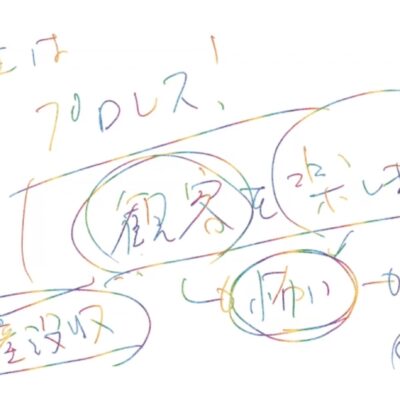 は
プロレス!
観客を楽し
怖い
没収